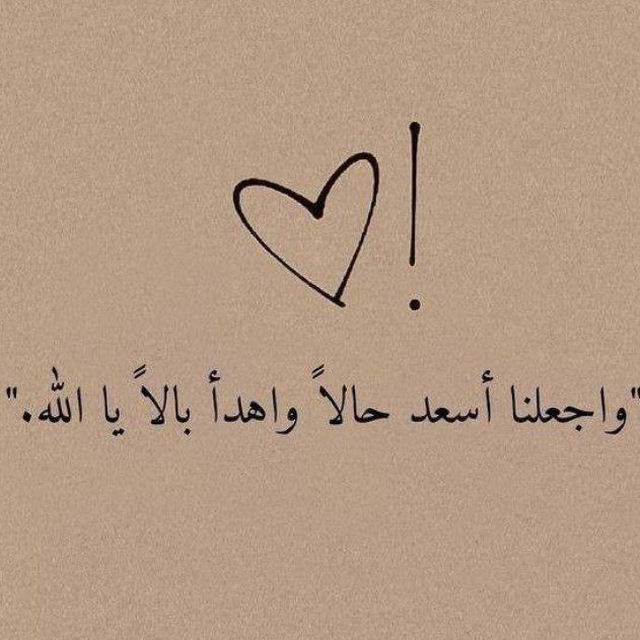 !
"واجعلنا أسعد حالاً واهدأ بالاً يا الله."